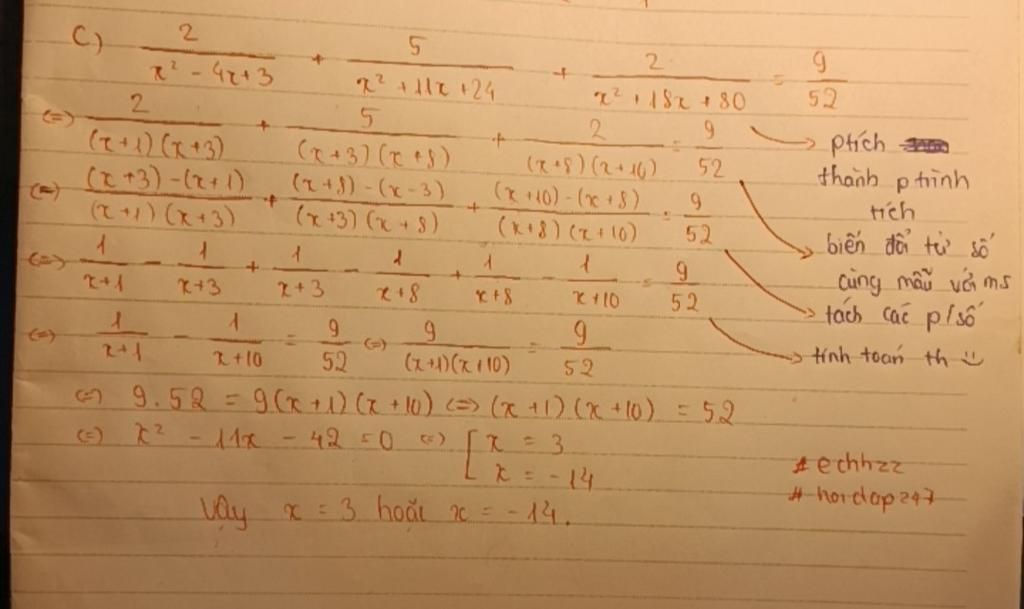 C) 2/(x² - 4x+3) + 5/(x² + 11x + 24) + 2/(x² + 18x + 80) = 9/52
(=) 2/((x+1)(x+3)) + 5/((x+3)(x+8)) + 2/((x+8)(x+10)) = 9/52
→ ptích
thành ptrình
tích
(=) ((x+3)-(x+1))/((x+1)(x+3)) + ((x+8)-(x-3))/((x+3)(x+8)) + ((x+10)-(x+8))/((x+8)(x+10)) = 9/52
→ biến đổi tử số
cùng mẫu với ms
(=) 1/(x+1) - 1/(x+3) + 1/(x+3) - 1/(x+8) + 1/(x+8) - 1/(x+10) = 9/52
→ tách các p/số
(=) 1/(x+1) - 1/(x+10) = 9/52 (=) 9/((x+1)(x+10)) = 9/52
→ tính toán th
(=) 9.52 = 9(x+1)(x+10) (=) (x+1)(x+10) = 52
(=) x² - 11x - 42 = 0 (=) [ x = 3
x = -14
# echhzz
# hoidap247
Vậy x = 3 hoặc x = -14.